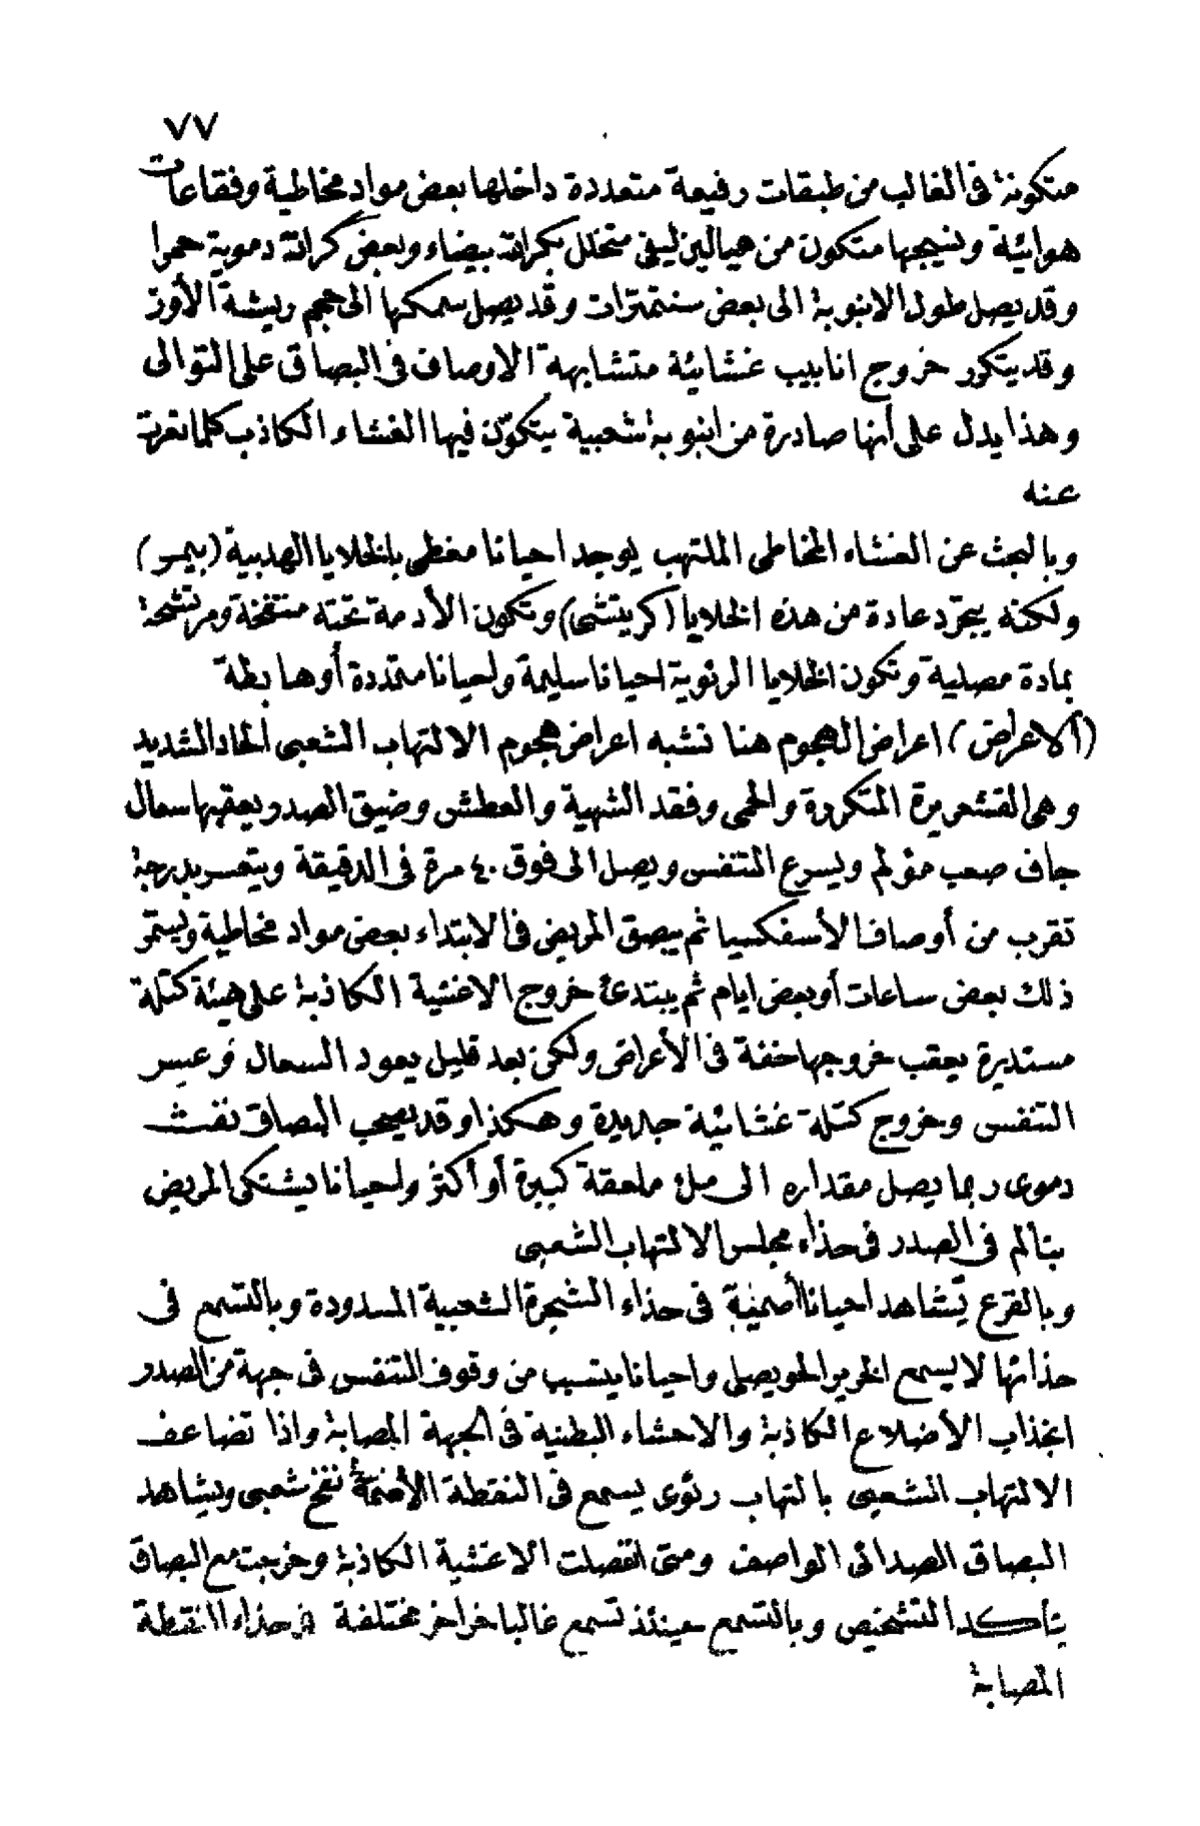 ٧٧
متكونة فى الغالب من طبقات رفيعة متعددة داخلها بعض مواد مخاطية وفقاعات
هوائية ونسيجها متكون من هيالين ليفى متخلل بكرات بيضاء وبعض كرات دموية حمرا
وقد يصل طول الانبوبة الى بعض سنتمترات وقد يصل سمكها الى حجم ريشة الأوز
وقد يتكرر خروج انابيب غشائية متشابهة الاوصاف فى البصاق على التوالى
وهذا يدل على أنها صادرة من انبوبة شعبية يتكوّن فيها الغشاء الكاذب كلما تعرت
عنه
وبالبحث عن الغشاء المخاطى الملتهب يوجد احيانا مغطى بالخلايا الهدبية (بيمر)
ولكنه يتجرّد عادة من هذه الخلايا (كريتشى) وتكون الأدمة تحته منتفخة ومرتشحة
بمادة مصلية وتكون الخلايا الرئوية احيانا سليمة واحيانا متمددة أوهابطة
(الاعراض) اعراض الهجوم هنا تشبه اعراض هجوم الالتهاب الشعبى الحاد الشديد
وهى القشعريرة المتكررة والحمى وفقد الشهية والعطش وضيق الصدر يعقبها سعال
جاف صعب مؤلم ويسرع التنفس ويصل الى فوق ٤٠ مرة فى الدقيقة ويتعسر بدرجة
تقرب من أوصاف الأسفكسيا ثم يبصق المريض فى الابتداء بعض مواد مخاطية ويستمر
ذلك بعض ساعات أو بعض ايام ثم يبتدئ خروج الاغشية الكاذبة على هيئة كتلة
مستديرة يعقب خروجها خفة فى الأعراض ولكن بعد قليل يعود السعال وعسر
التنفس وخروج كتلة غشائية جديدة وهكذا وقد يصحب البصاق نفث
دموى ربما يصل مقداره الى ملء ملعقة كبيرة أو أكثر واحيانا يشتكى المريض
بتألم فى الصدر فى حذاء مجلس الالتهاب الشعبى
وبالقرع تُشاهد احيانا أصمية فى حذاء الشجرة الشعبية المسدودة وبالتسمع فى
حذائها لا يسمع الخرير الحويصلى واحيانا يتسبب من وقوف التنفس فى جهة من الصدر
انجذاب الأضلاع الكاذبة والاحشاء البطنية فى الجهة المصابة واذا تضاعف
الالتهاب الشعبى بالتهاب رئوى يسمع فى النقطة الأصمية نفخ شعبى ويشاهد
البصاق الصدائى الواصف ومتى انفصلت الاغشية الكاذبة وخرجت مع البصاق
يتأكد التشخيص وبالتسمع حينئذ تسمع غالبا خراخر مختلفة فى حذاء النقطة
المصابة